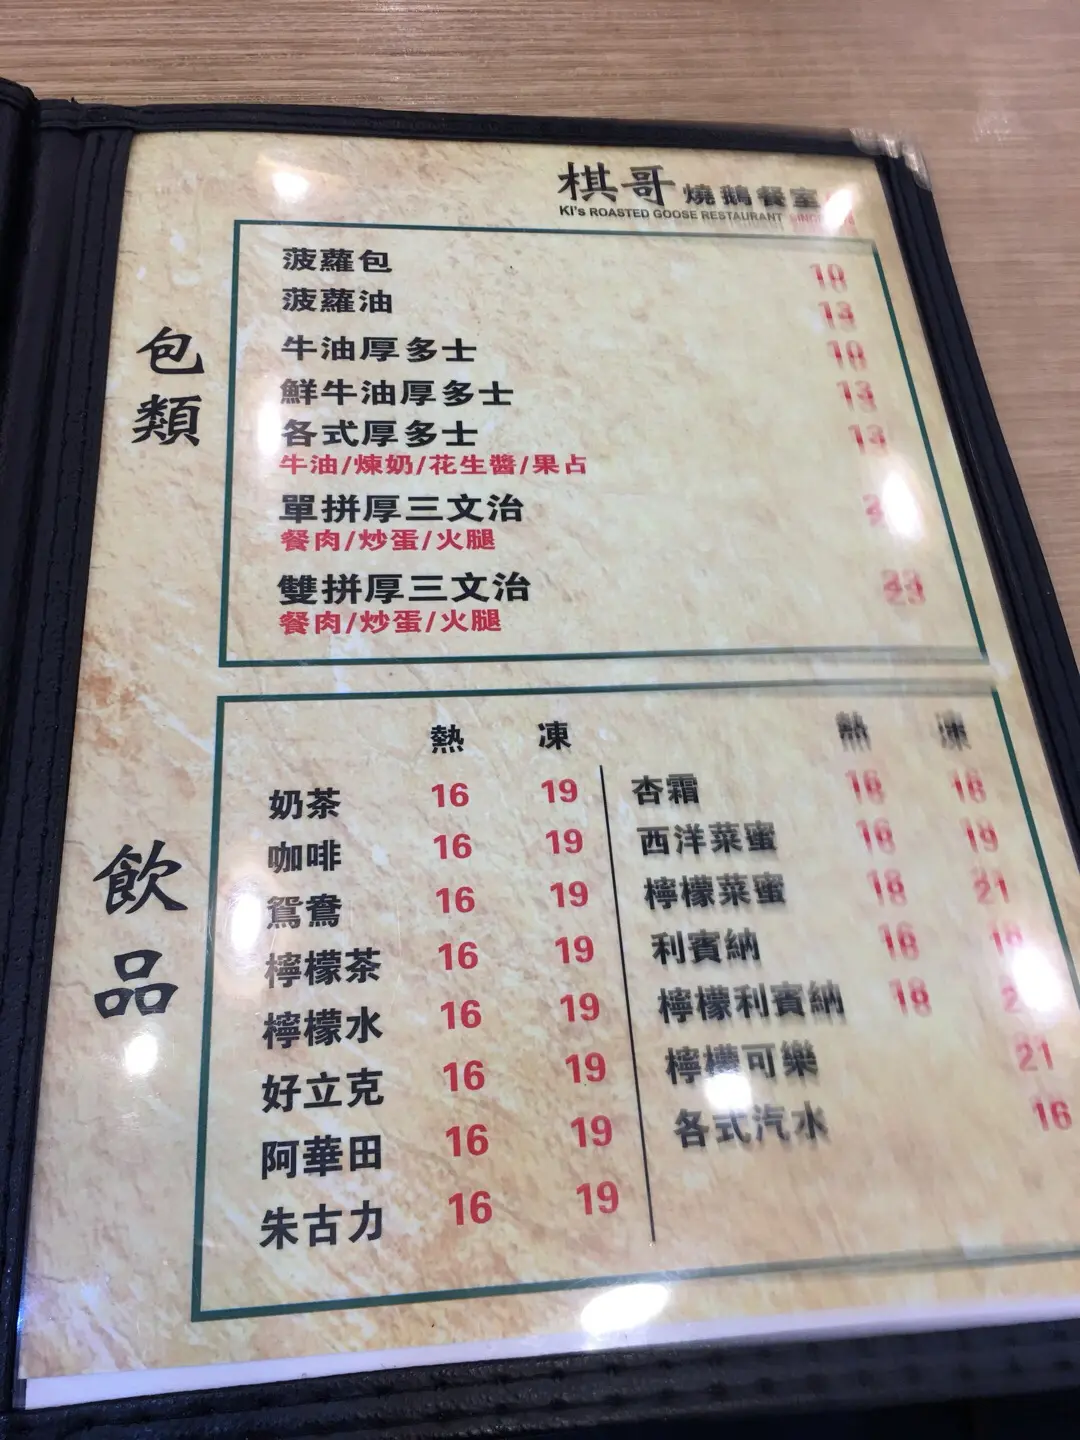 棋哥 燒鵝餐室
KI's ROASTED GOOSE RESTAURANT
包類
菠蘿包 10
菠蘿油 13
牛油厚多士 10
鮮牛油厚多士 13
各式厚多士 13
牛油/煉奶/花生醬/果占
單拼厚三文治
餐肉/炒蛋/火腿
雙拼厚三文治 23
餐肉/炒蛋/火腿
飲品
熱 凍
奶茶 16 19
咖啡 16 19
鴛鴦 16 19
檸檬茶 16 19
檸檬水 16 19
好立克 16 19
阿華田 16 19
朱古力 16 19
熱 凍
杏霜 16 16
西洋菜蜜 16 19
檸檬菜蜜 18 21
利賓納 16
檸檬利賓納 18
檸檬可樂 21
各式汽水 16